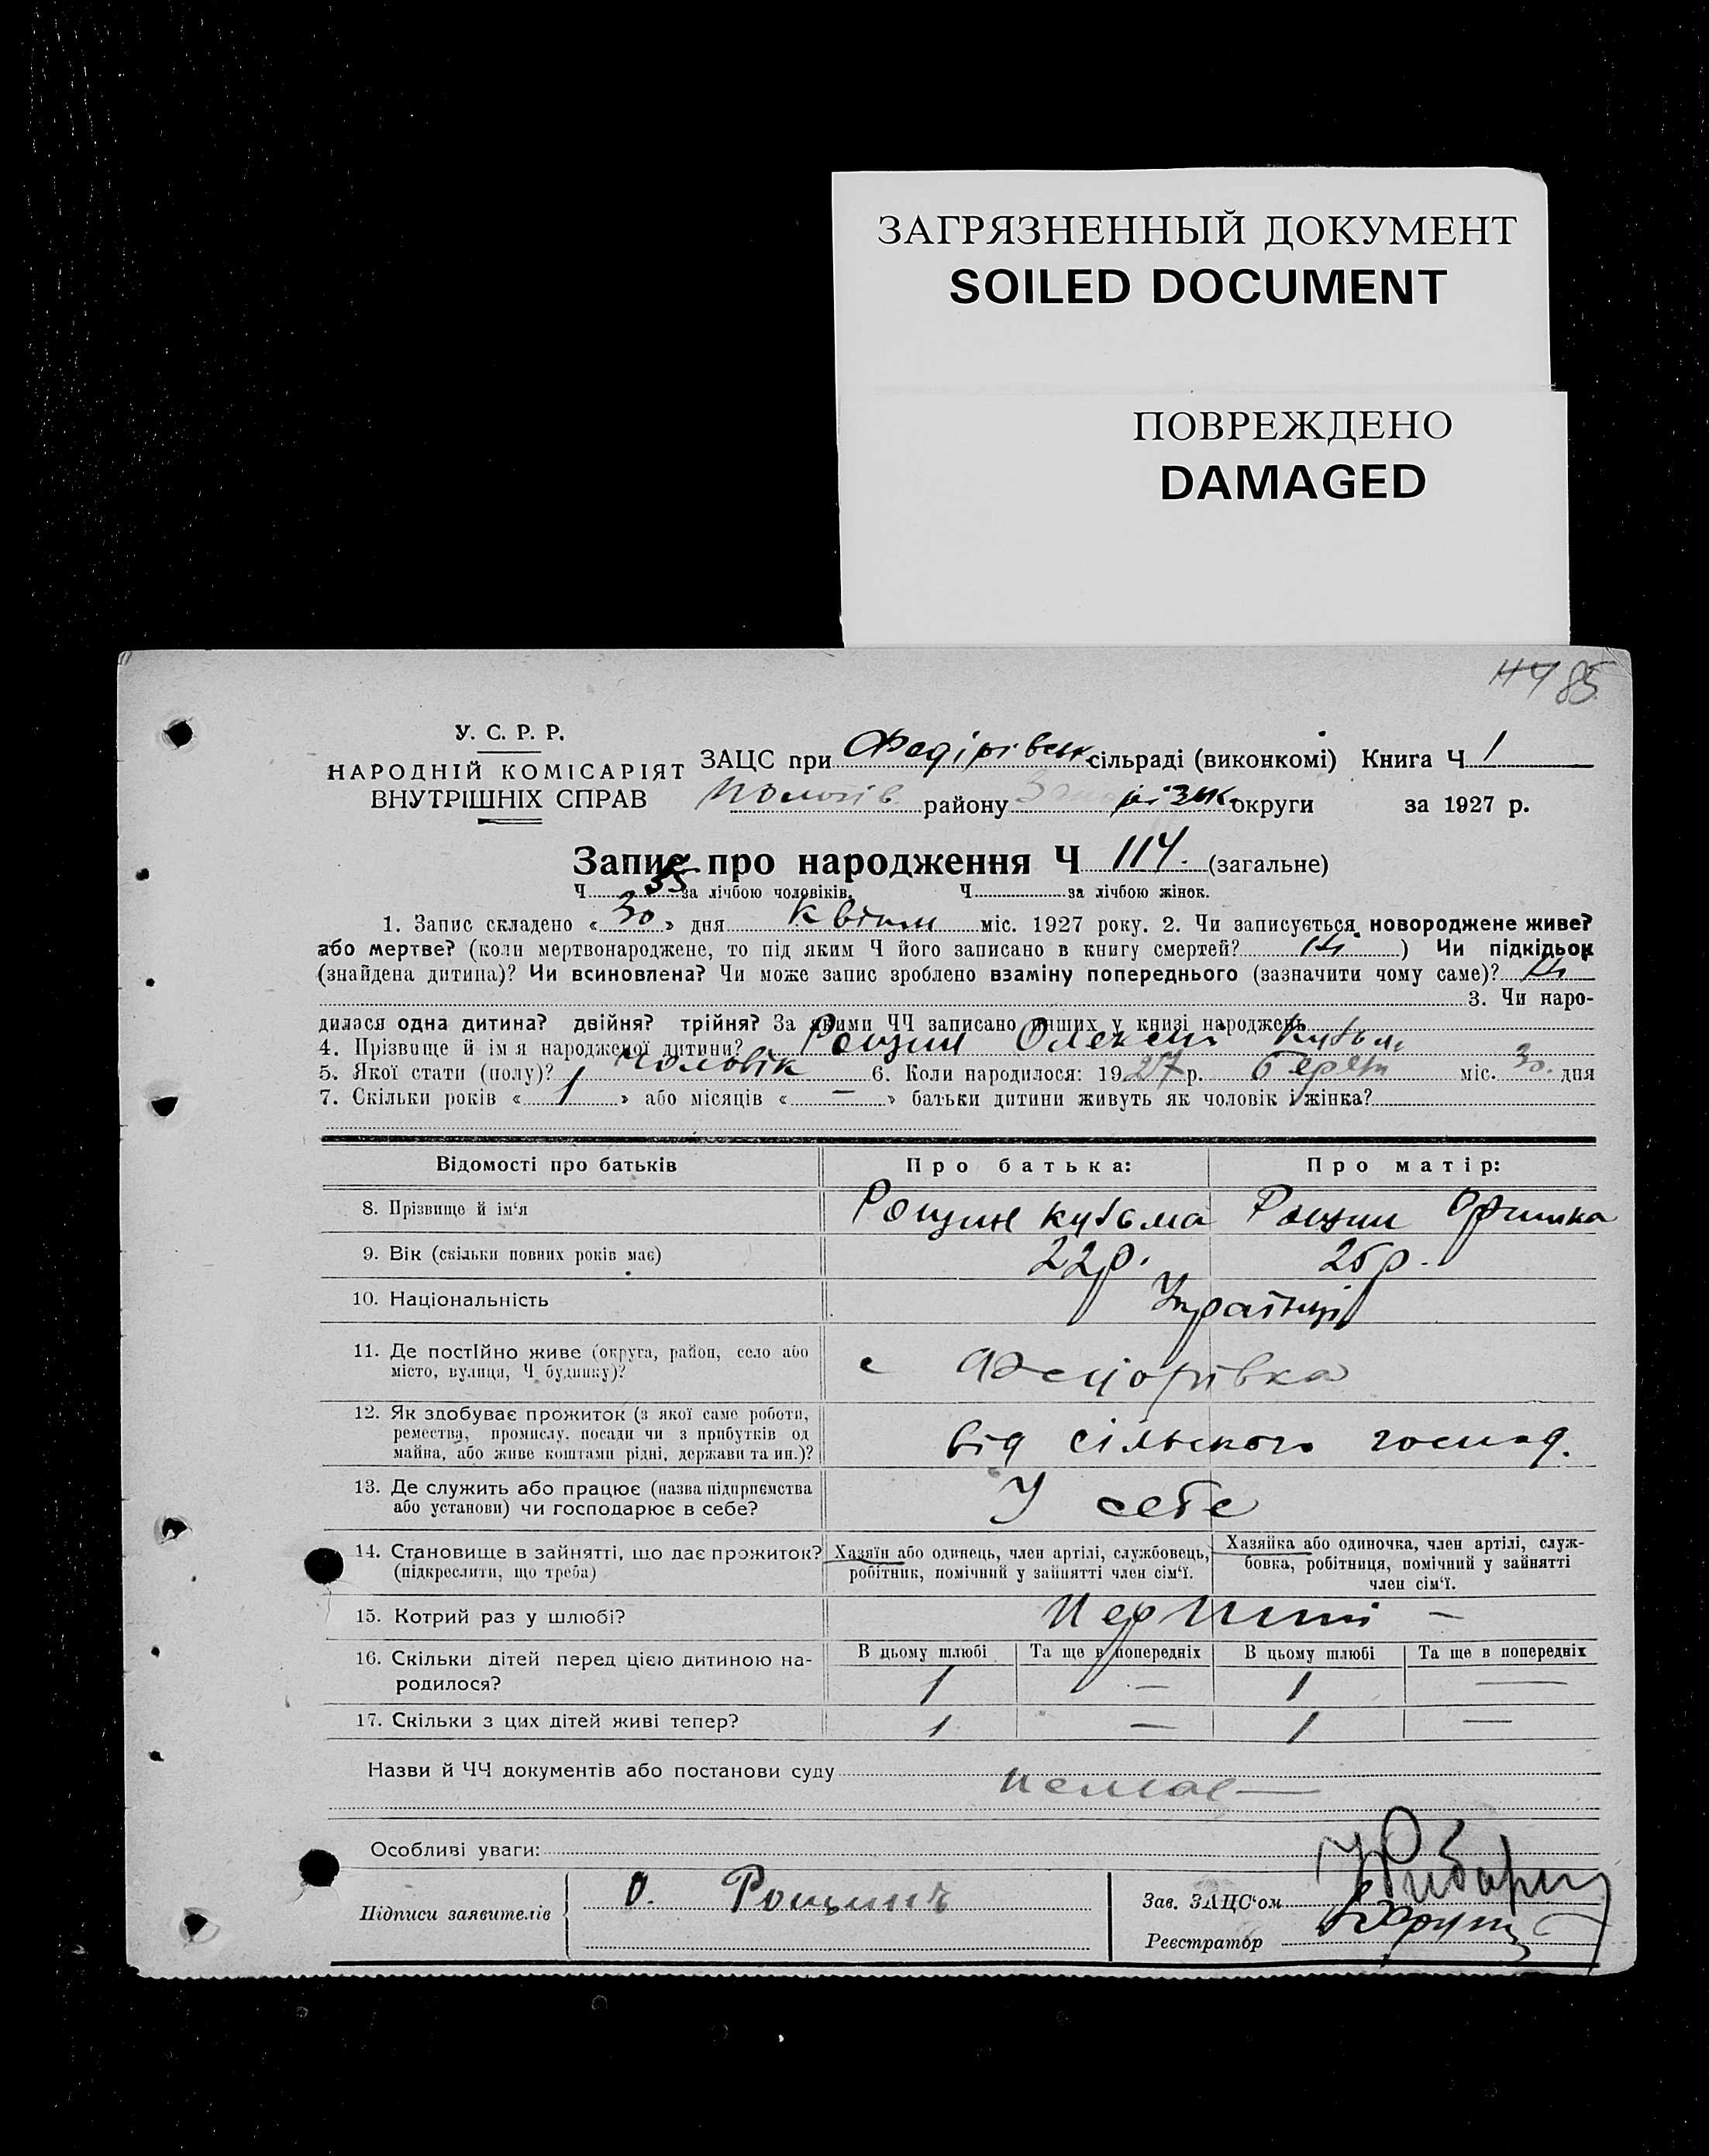 ЗАГРЯЗНЕННЫЙ ДОКУМЕНТ
SOILED DOCUMENT
ПОВРЕЖДЕНО
DAMAGED
114 85
У. С. Р. Р.
НАРОДНІЙ КОМІСАРІЯТ
ВНУТРІШНІХ СПРАВ
ЗАЦС при Федірівськ сільраді (виконкомі) Книга Ч 1
Пологів району різьк округи за 1927 р.
Запис про народження Ч 114. (загальне)
Ч 35 за лічбою чоловіків, Ч за лічбою жінок.
1. Запис складено « 30 » дня квітня міс. 1927 року. 2. Чи записується новороджене живе?
або мертве? (коли мертвонароджене, то під яким Ч його записано в книгу смертей? ні ) Чи підкідьок
(знайдена дитина)? Чи всиновлена? Чи може запис зроблено взаміну попереднього (зазначити чому саме)? ні
3. Чи наро-
дилася одна дитина? двійня? трійня? За якими ЧЧ записано инших у книзі народжень
4. Прізвище й ім'я народженої дитини? Рощин Олексій Кузьм
5. Якої стати (полу)? Чоловік 6. Коли народилося: 1927 р. берез міс. 30. дня
7. Скільки років « 1 » або місяців « — » батьки дитини живуть як чоловік і жінка?
Відомості про батьків Про батька: Про матір:
8. Прізвище й ім'я Рощин Кузьма Рощин Оришка
9. Вік (скільки повних років має) 22 р. 25 р.
10. Національність Українці
11. Де постійно живе (округа, район, село або
місто, вулиця, Ч будинку)? с Федорівка
12. Як здобуває прожиток (з якої саме роботи,
ремества, промислу, посади чи з прибутків од
майна, або живе коштами рідні, держави та ин.)? від сільського господ.
13. Де служить або працює (назва підприємства
або установи) чи господарює в себе? У себе
14. Становище в зайнятті, що дає прожиток?
(підкреслити, що треба)
Хазяїн або одинець, член артілі, службовець,
робітник, помічний у зайнятті член сім'ї.
Хазяйка або одиночка, член артілі, служ-
бовка, робітниця, помічний у зайнятті
член сім'ї.
15. Котрий раз у шлюбі? Перший —
16. Скільки дітей перед цією дитиною на-
родилося?
В цьому шлюбі Та ще в попередніх В цьому шлюбі Та ще в попередніх
1 — 1 —
17. Скільки з цих дітей живі тепер? 1 — 1 —
Назви й ЧЧ документів або постанови суду немає —
Особливі уваги:
Підписи заявителів О. Рощинъ
Зав. ЗАЦС'ом
Реєстратор